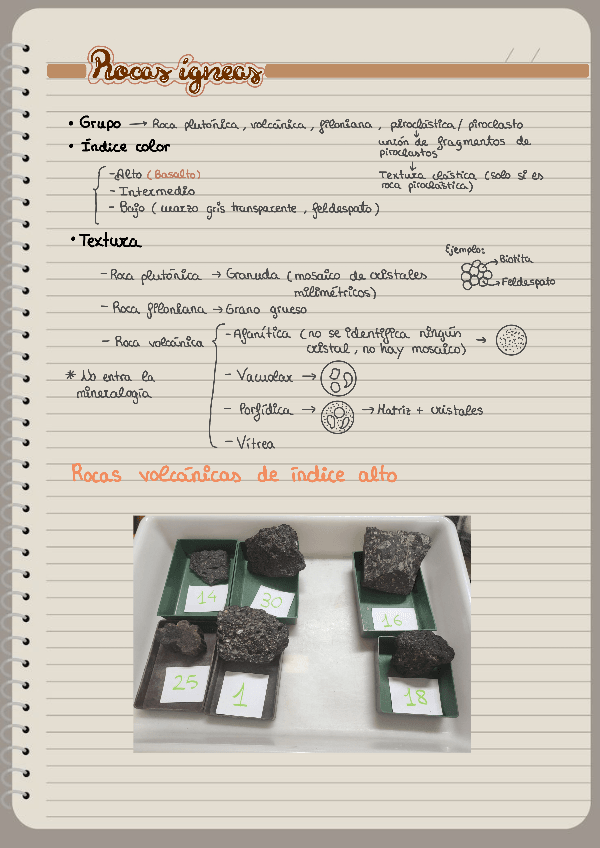 Rocas ígneas
/ /
• Grupo → Roca plutónica, volcánica, filoniana, piroclástica / piroclasto
unión de fragmentos de
piroclastos
Textura clástica (solo si es
roca piroclástica)
• Índice color
- Alto (Basalto)
- Intermedio
- Bajo (cuarzo gris transparente, feldespato)
• Textura
- Roca plutónica → Granuda (mosaico de cristales
milimétricos)
Ejemplo:
Biotita
Feldespato
- Roca filoniana → Grano grueso
- Roca volcánica
- Afanítica (no se identifica ningún
cristal, no hay mosaico) →
- Vacuolar →
- Porfídica → → Matriz + cristales
- Vítrea
* No entra la
mineralogía
Rocas volcánicas de índice alto
14
30
16
25
1
18